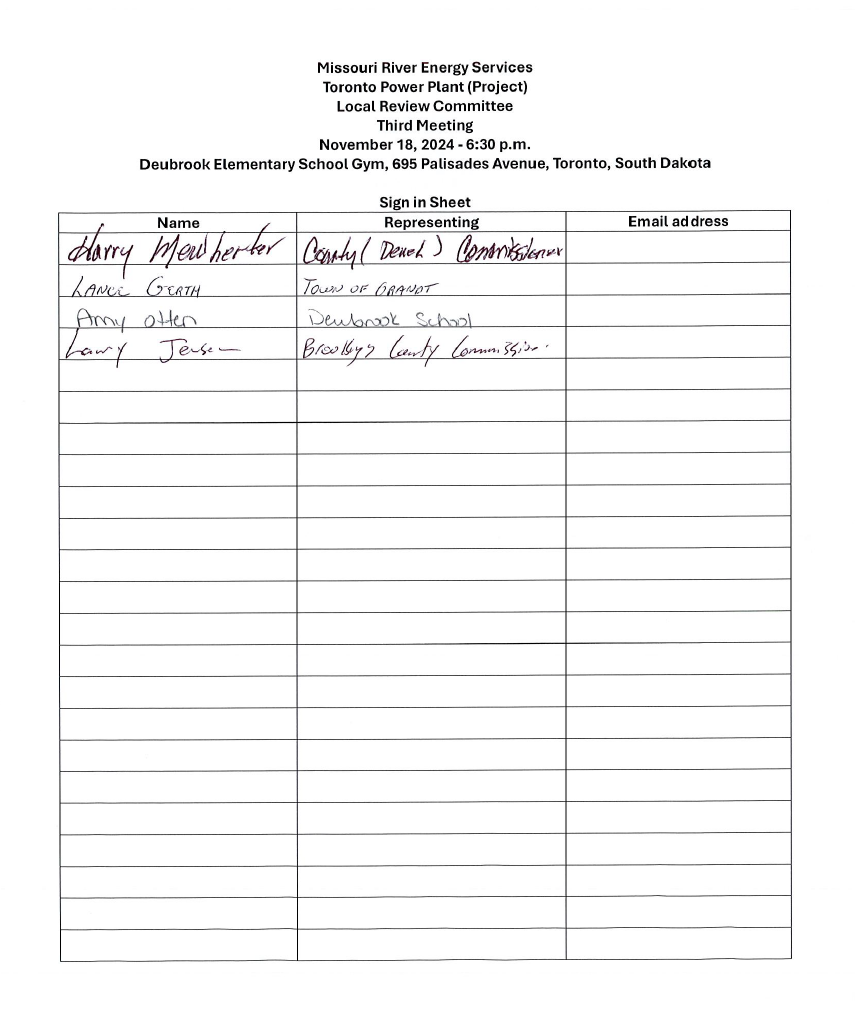 Missouri River Energy Services
Toronto Power Plant (Project)
Local Review Committee
Third Meeting
November 18, 2024 - 6:30 p.m.
Deubrook Elementary School Gym, 695 Palisades Avenue, Toronto, South Dakota
Sign in Sheet
Name Representing Email address
Harry County (Deuel) Commissioner
LANCE GERTH TOWN OF
Amy Otten Deubrook School
Larry Jensen County